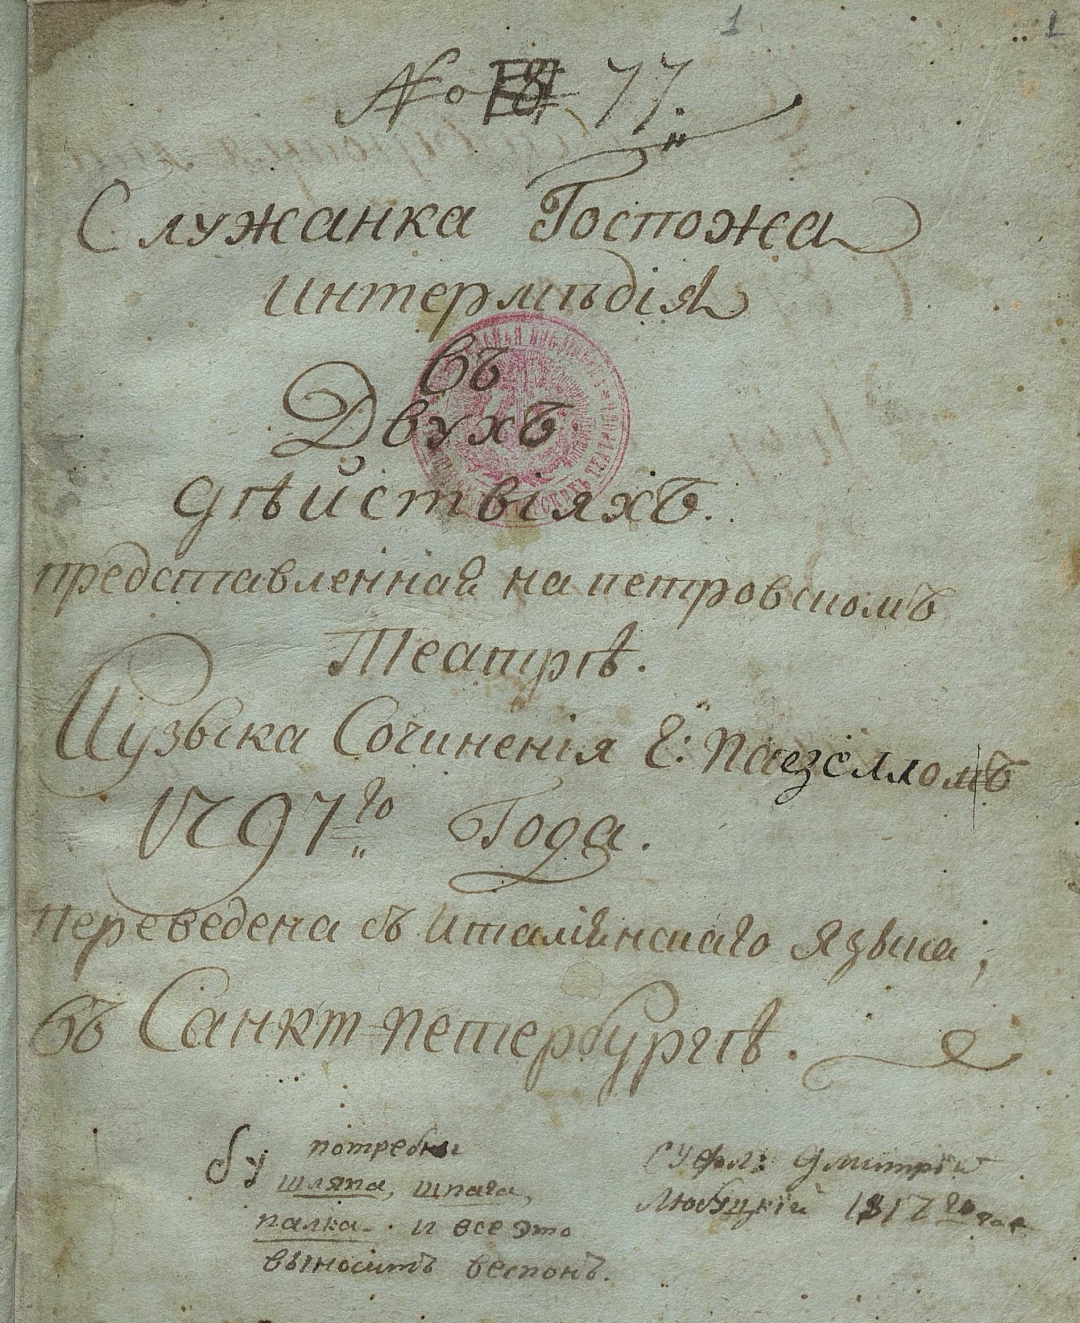 1 1
№ 77.
Служанка Госпожа
интермѣдія
въ
Двухъ
дѣйствіяхъ.
представленная на петровскомъ
Театрѣ.
Музыка Сочиненія Г: Паезелломъ
1797го Года.
переведена съ италіянскаго языка,
въ Санкт-петербургѣ.
потребны
шляпа, шпага,
палка. и все это
выноситъ веспонъ.
суфл: Дмитрій
Любуцкій 1817 го